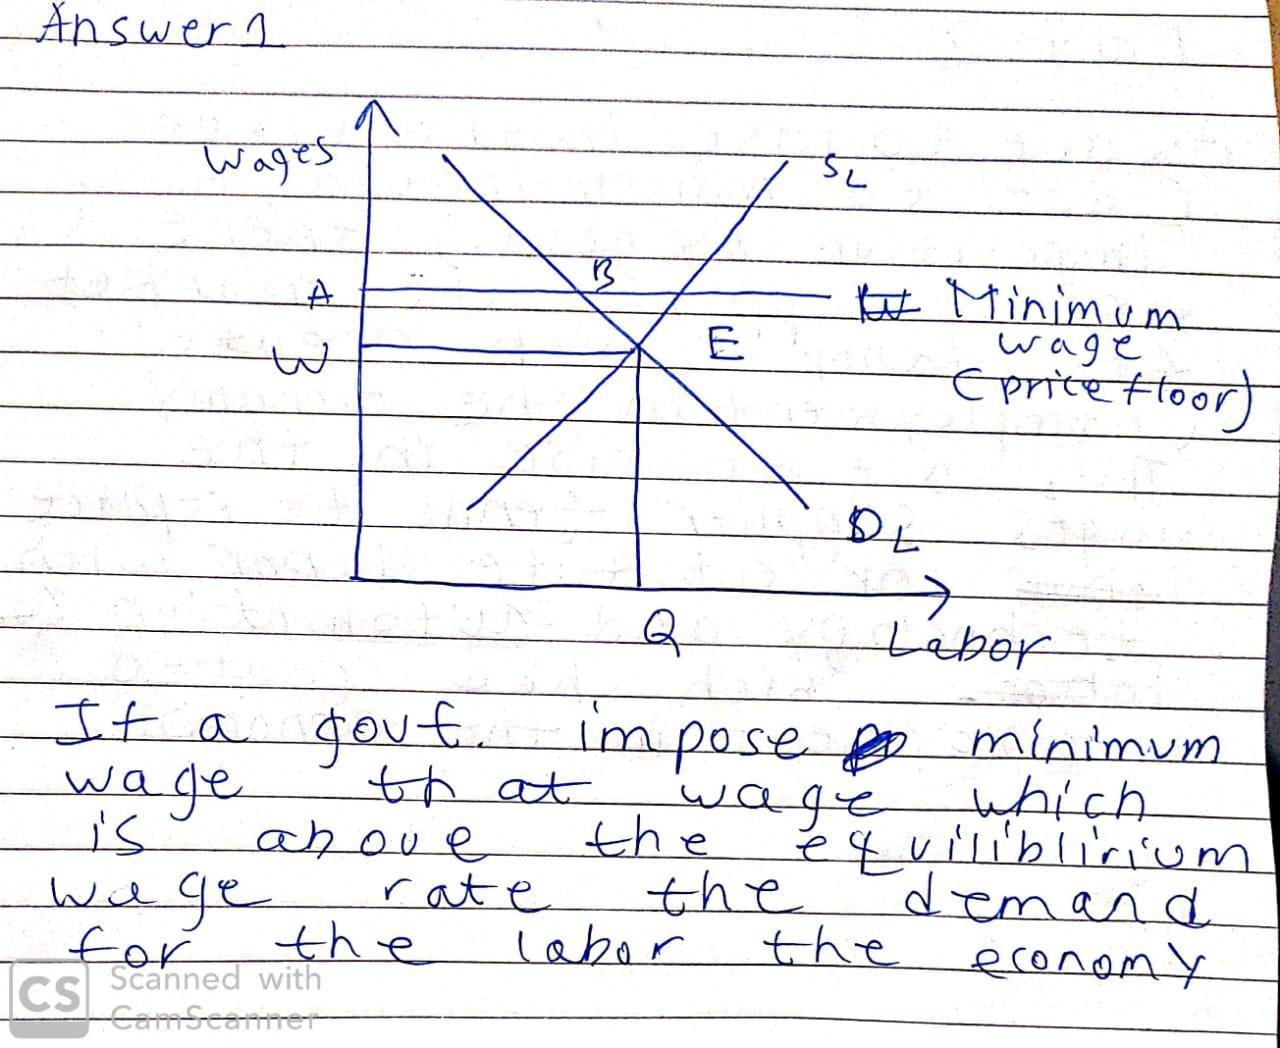 Answer 1
Wages
SL
B
A
Minimum
wage
(price floor)
E
W
DL
Q
Labor
If a govt. impose minimum
wage that wage which
is above the equiliblirium
wage rate the demand
for the labor the economy
CS Scanned with
CamScanner